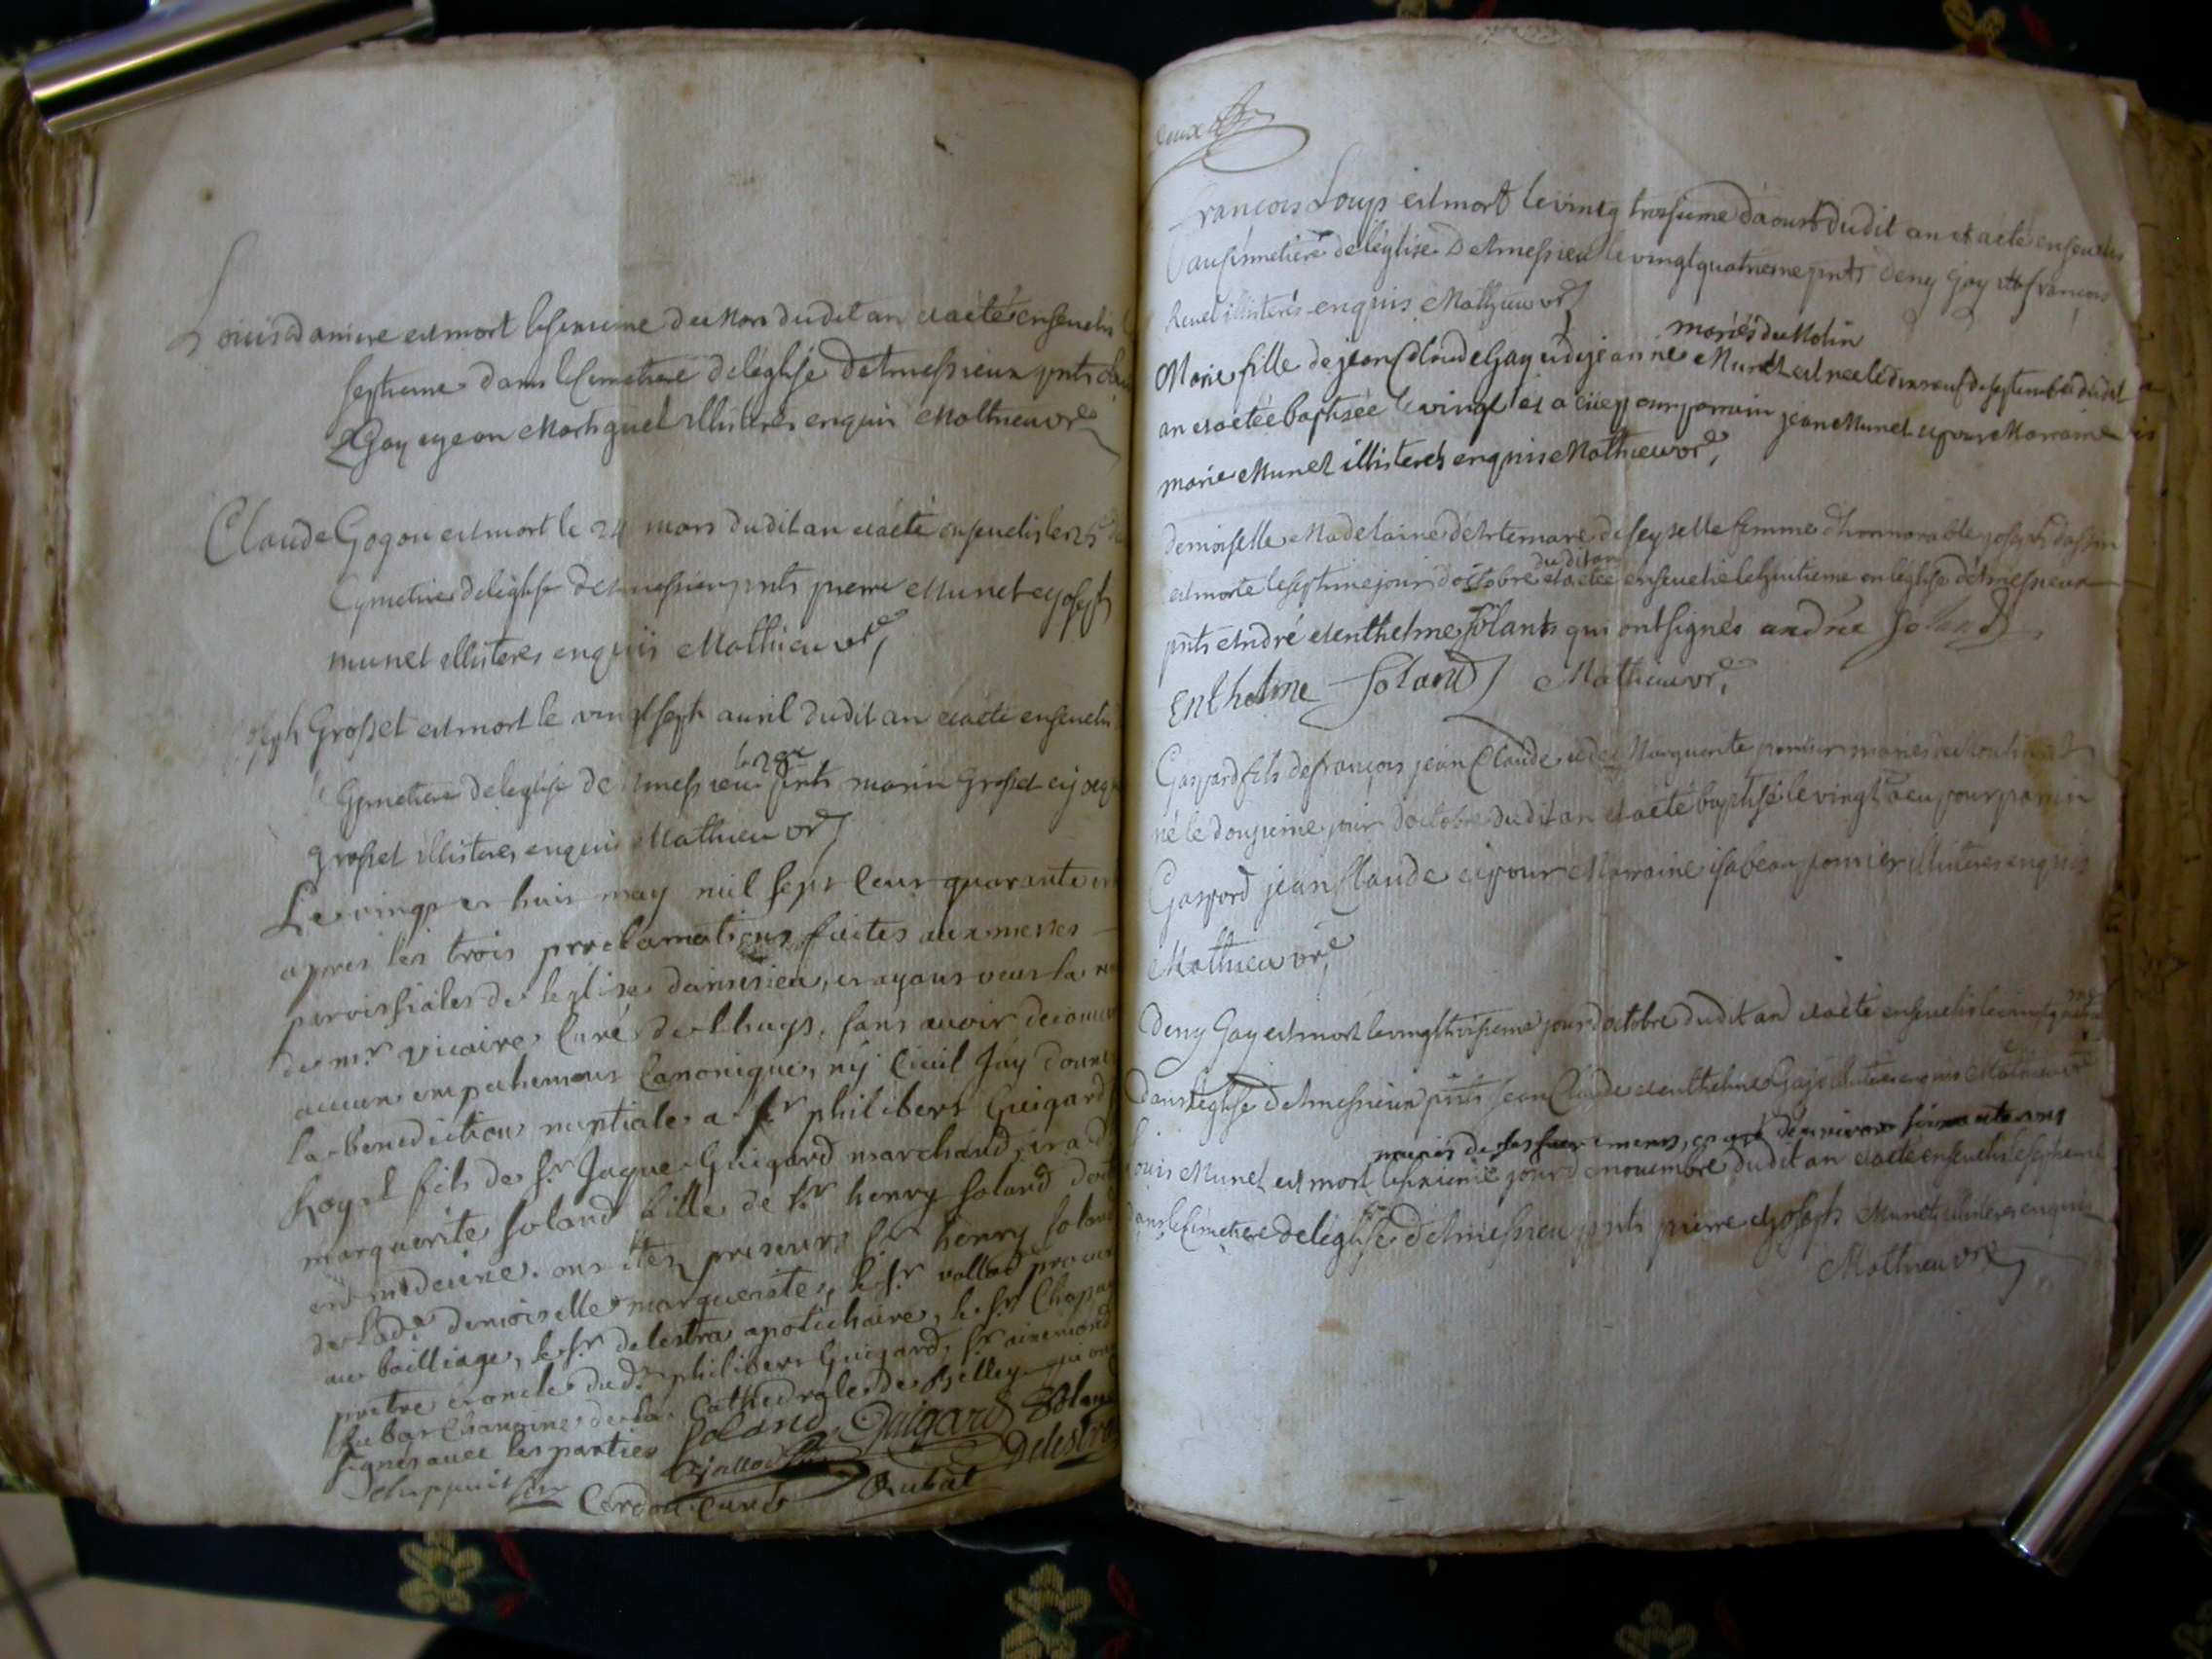 Louis est mort le sixieme de Mars dudit an et a eté ensevelis
septieme dans le cimetiere de léglise dArmessieux pnts
Gay et jean Martiguet illisteres enquis Mathieu vre
Claude Gogou est mort le 24 mars dudit an et a eté ensevelis le 25
Cymetiere de léglise dArmessieu pnts pierre Munet et joseph
munet illisteres enquis Mathieu vre
joseph Grosset est mort le vingt sept avril dudit an et a eté ensevelis
le 28e
Cymetiere de leglise dArmessieu pnts marin Grosset et
grosset illisteres enquis Mathieu vre
Le vingt et huit may mil sept cent quarante
apres les trois proclamations faites aux messes
parroissiales de leglise darmesieu, et ayant veus la
de mr vicaire Curé de Lhuys, sans avoir decouvert
aucun empechement Canonique, ny Civil jay donné
la benediction nuptiale a sr philibert Guigard
fils de sr Jaque Guigard marchand, et a
marguerite soland fille de sr henry soland
en medecine. ont été presents sr henry soland
de lade demoiselle marguerite, le sr vallod
au bailliage, le sr delestra apotichaire, le sr
pretre et oncle dud. philibert Guigard, sr
Chanoine de la Cathedrale de Belley qui ont
signés avec les parties Soland Guigard Soland
Delestra
chappuit Cordon curé Rubat
deux
françois Loup est mort le vingt troisieme d'aoust dudit an et a eté ensevelis
au simmetiere de léglise dArmessieu le vingt quatrieme pnts deny Gay et françois
Revel illisteres enquis Mathieu vre
mariés du Molin
Marie fille de jean Claude Gay et de jeanne Munet est nee le dix neuf de septembre dudit
an et a eté baptisée le vingt et a eü pour parrain jean Munet et pour Marraine
marie Munet illisteres enquis Mathieu vre
demoiselle Madelaine dArtemare de seyselle femme d'honnorable joseph
dudit an
est morte le septieme jour doctobre et a eté ensevelie le huitieme en léglise dArmessieux
pnts André et Enthelme solants qui ont signés andre Soland
Enthelme Soland Mathieu vre
Gaspard fils de françois jean Claude et de Marguerite mariés
né le douzieme jour doctobre dudit an et a eté baptisé le vingt a eu pour parrain
Gaspard jean Claude et pour Marraine isabeau illisteres enquis
Mathieu vre
Deny Gay est mort le vingt troisieme jour doctobre dudit an et a eté ensevelis le vingt
dans léglise dArmessieux pnts jean Claude et enthelme Gay illisteres enquis Mathieu vre
munis de ses sacremens, et agé denviron soixante ans
Louis Munet est mort le sixieme jour de novembre dudit an et a eté ensevelis le septieme
dans le Cimetiere de léglise dArmessieu pnts pierre et joseph Munets illisteres enquis
Mathieu vre